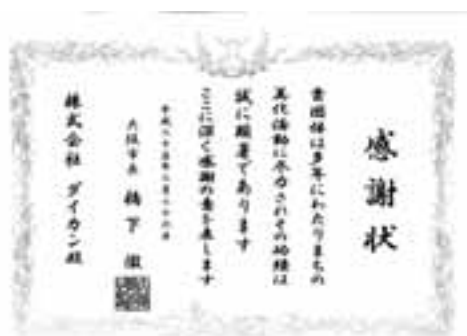 感謝状
貴団体は多年にわたりまちの
美化活動に尽力されその功績は
誠に顕著であります
ここに深く感謝の意を表します
平成二十五年
大阪市長 橋下 徹
株式会社 ダイカン殿